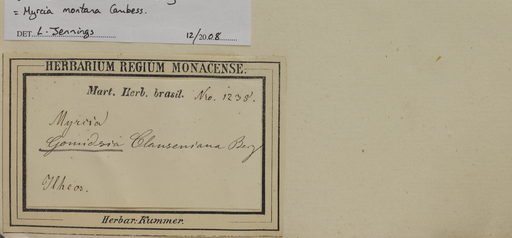 = Myrcia montana Cambess.
DET. L. Jennings 12/2008
HERBARIUM REGIUM MONACENSE.
Mart. Herb. brasil. Nro. 1238.
Myrcia
Gomidesia Clauseniana Berg
Ilheos.
Herbar. Kummer.